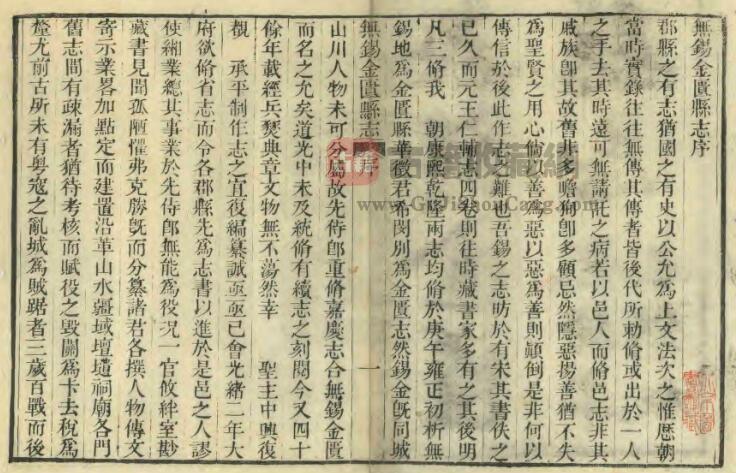 無錫金匱縣志序
郡縣之有志猶國之有史以公允爲上文法次之惟歷朝
當時實錄往往無傳其傳者皆後代所勅脩或出於一人
之手去其時遠可無請託之病若以邑人而脩邑志非其
戚族卽其故舊非多瞻狥卽多顧忌然隱惡揚善猶不失
爲聖賢之用心倘以善爲惡以惡爲善則顚倒是非何以
傳信於後此作志之難也吾錫之志昉於有宋其書佚之
已久而元王仁輔志四卷則往時藏書家多有之其後明
凡三脩我 朝康熙乾隆兩志均脩於庚午雍正初析無
錫地爲金匱縣華徵君希閔別爲金匱志然錫金旣同城
無錫金匱縣志 序 一
山川人物未可分爲故先侍郎重脩嘉慶志合無錫金匱
而名之允矣道光中未及統脩有續志之刻閱今又四十
餘年載經兵燹典章文物無不蕩然幸 聖主中興復
覩 承平制作志之宜復編纂誠亟亟已會光緒二年大
府欲脩省志而令各郡縣先爲志書以進於是邑之人謬
使緗業總其事業於先侍郎無能爲役況一官攸絆室尠
藏書見聞孤陋懼弗克勝旣而分纂諸君各撰人物傳文
寄示業畧加點定而建置沿革山水疆域壇壝祠廟各門
舊志間有疎漏者猶待考核而賦役之毀關爲卡去稅爲
釐尤前古所未有粤寇之亂城爲賊踞者三歲百戰而後
古籍收藏網
www.GuJiShouCang.com